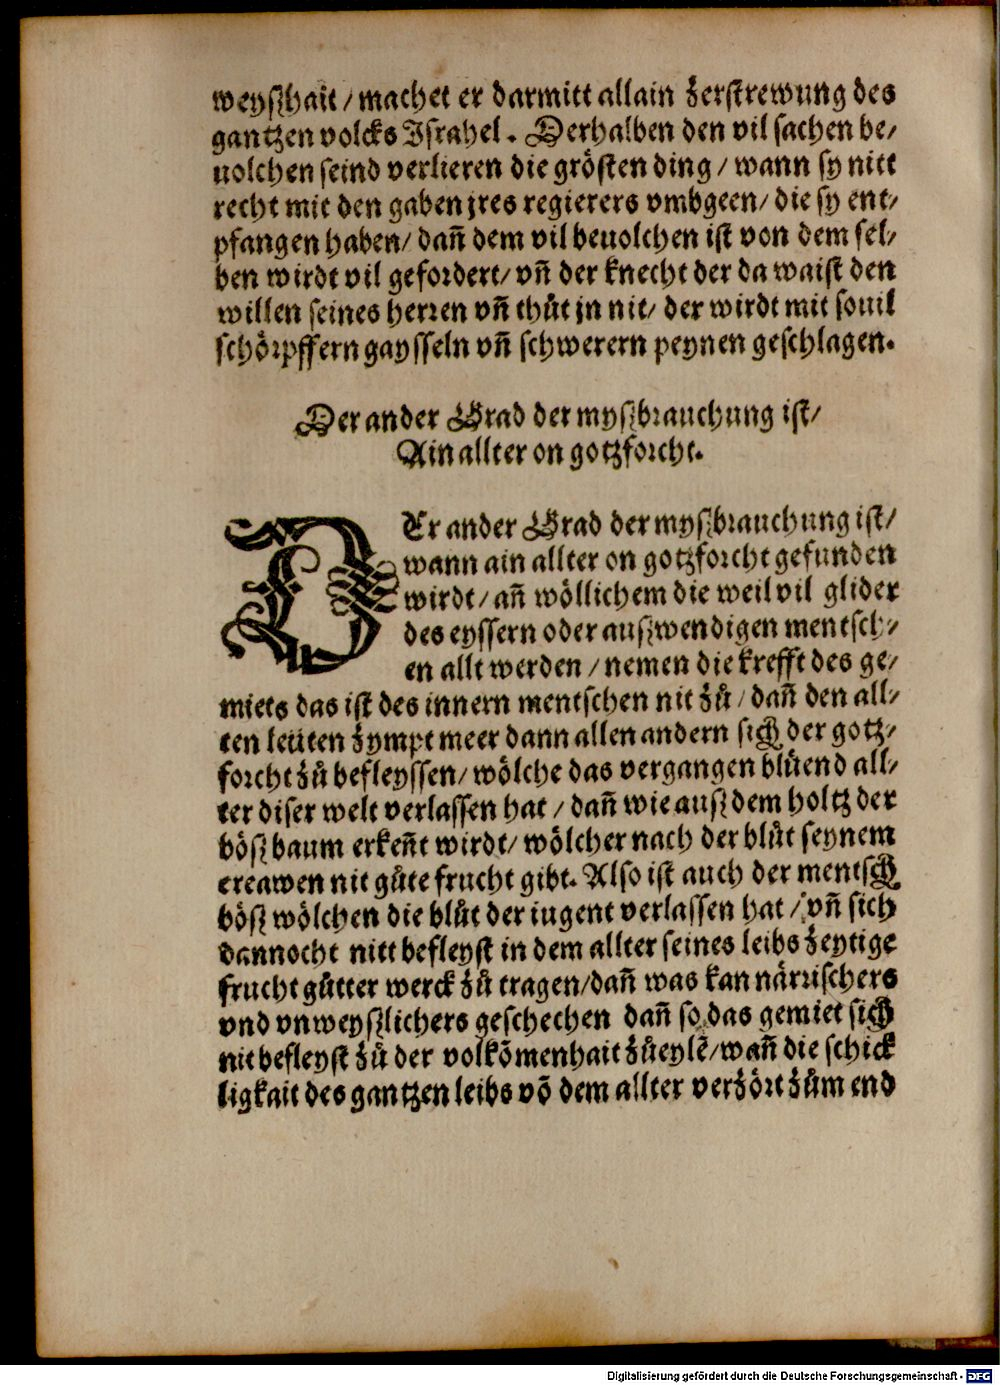 weyszhait / machet er darmitt allain zerstrewung des
gantzen volcks Israhel. Derhalben den vil sachen be/
uolchen seind verlieren die grösten ding / wann sy nitt
recht mit den gaben jres regierers vmbgeen / die sy ent/
pfangen haben / dañ dem vil beuolchen ist von dem sel/
ben wirdt vil gefordert / vñ der knecht der da waist den
willen seines herren vñ thůt jn nit / der wirdt mit souil
schörpffern gaysseln vñ schwerern peynen geschlagen.
Der ander Grad der myszbrauchung ist /
Ain allter on gotzforcht.
DEr ander Grad der myszbrauchung ist /
wann ain allter on gotzforcht gefunden
wirdt / añ wöllichem die weil vil glider
des eyssern oder auszwendigen mentsch/
en allt werden / nemen die krefft des ge/
miets das ist des innern mentschen nit zů / dañ den all/
ten leüten zympt meer dann allen andern sich der gotz/
forcht zů befleyssen / wölche das vergangen blüend all/
ter diser welt verlassen hat / dañ wie ausz dem holtz der
bösz baum erkeñt wirdt / wölcher nach der blůt seynem
ereawen nit gůte frucht gibt. Also ist auch der mentsch
bösz wölchen die blůt der iugent verlassen hat / vñ sich
dannocht nitt befleyst in dem allter seines leibs zeytige
frucht gůtter werck zů tragen / dañ was kan närrischers
vnd vnweyszlichers geschechen dañ so das gemiet sich
nit befleyst zů der volkõmenhait zůeylẽ / wañ die schick
ligkait des gantzen leibs võ dem allter verzört zům end
Digitalisierung gefördert durch die Deutsche Forschungsgemeinschaft - DFG